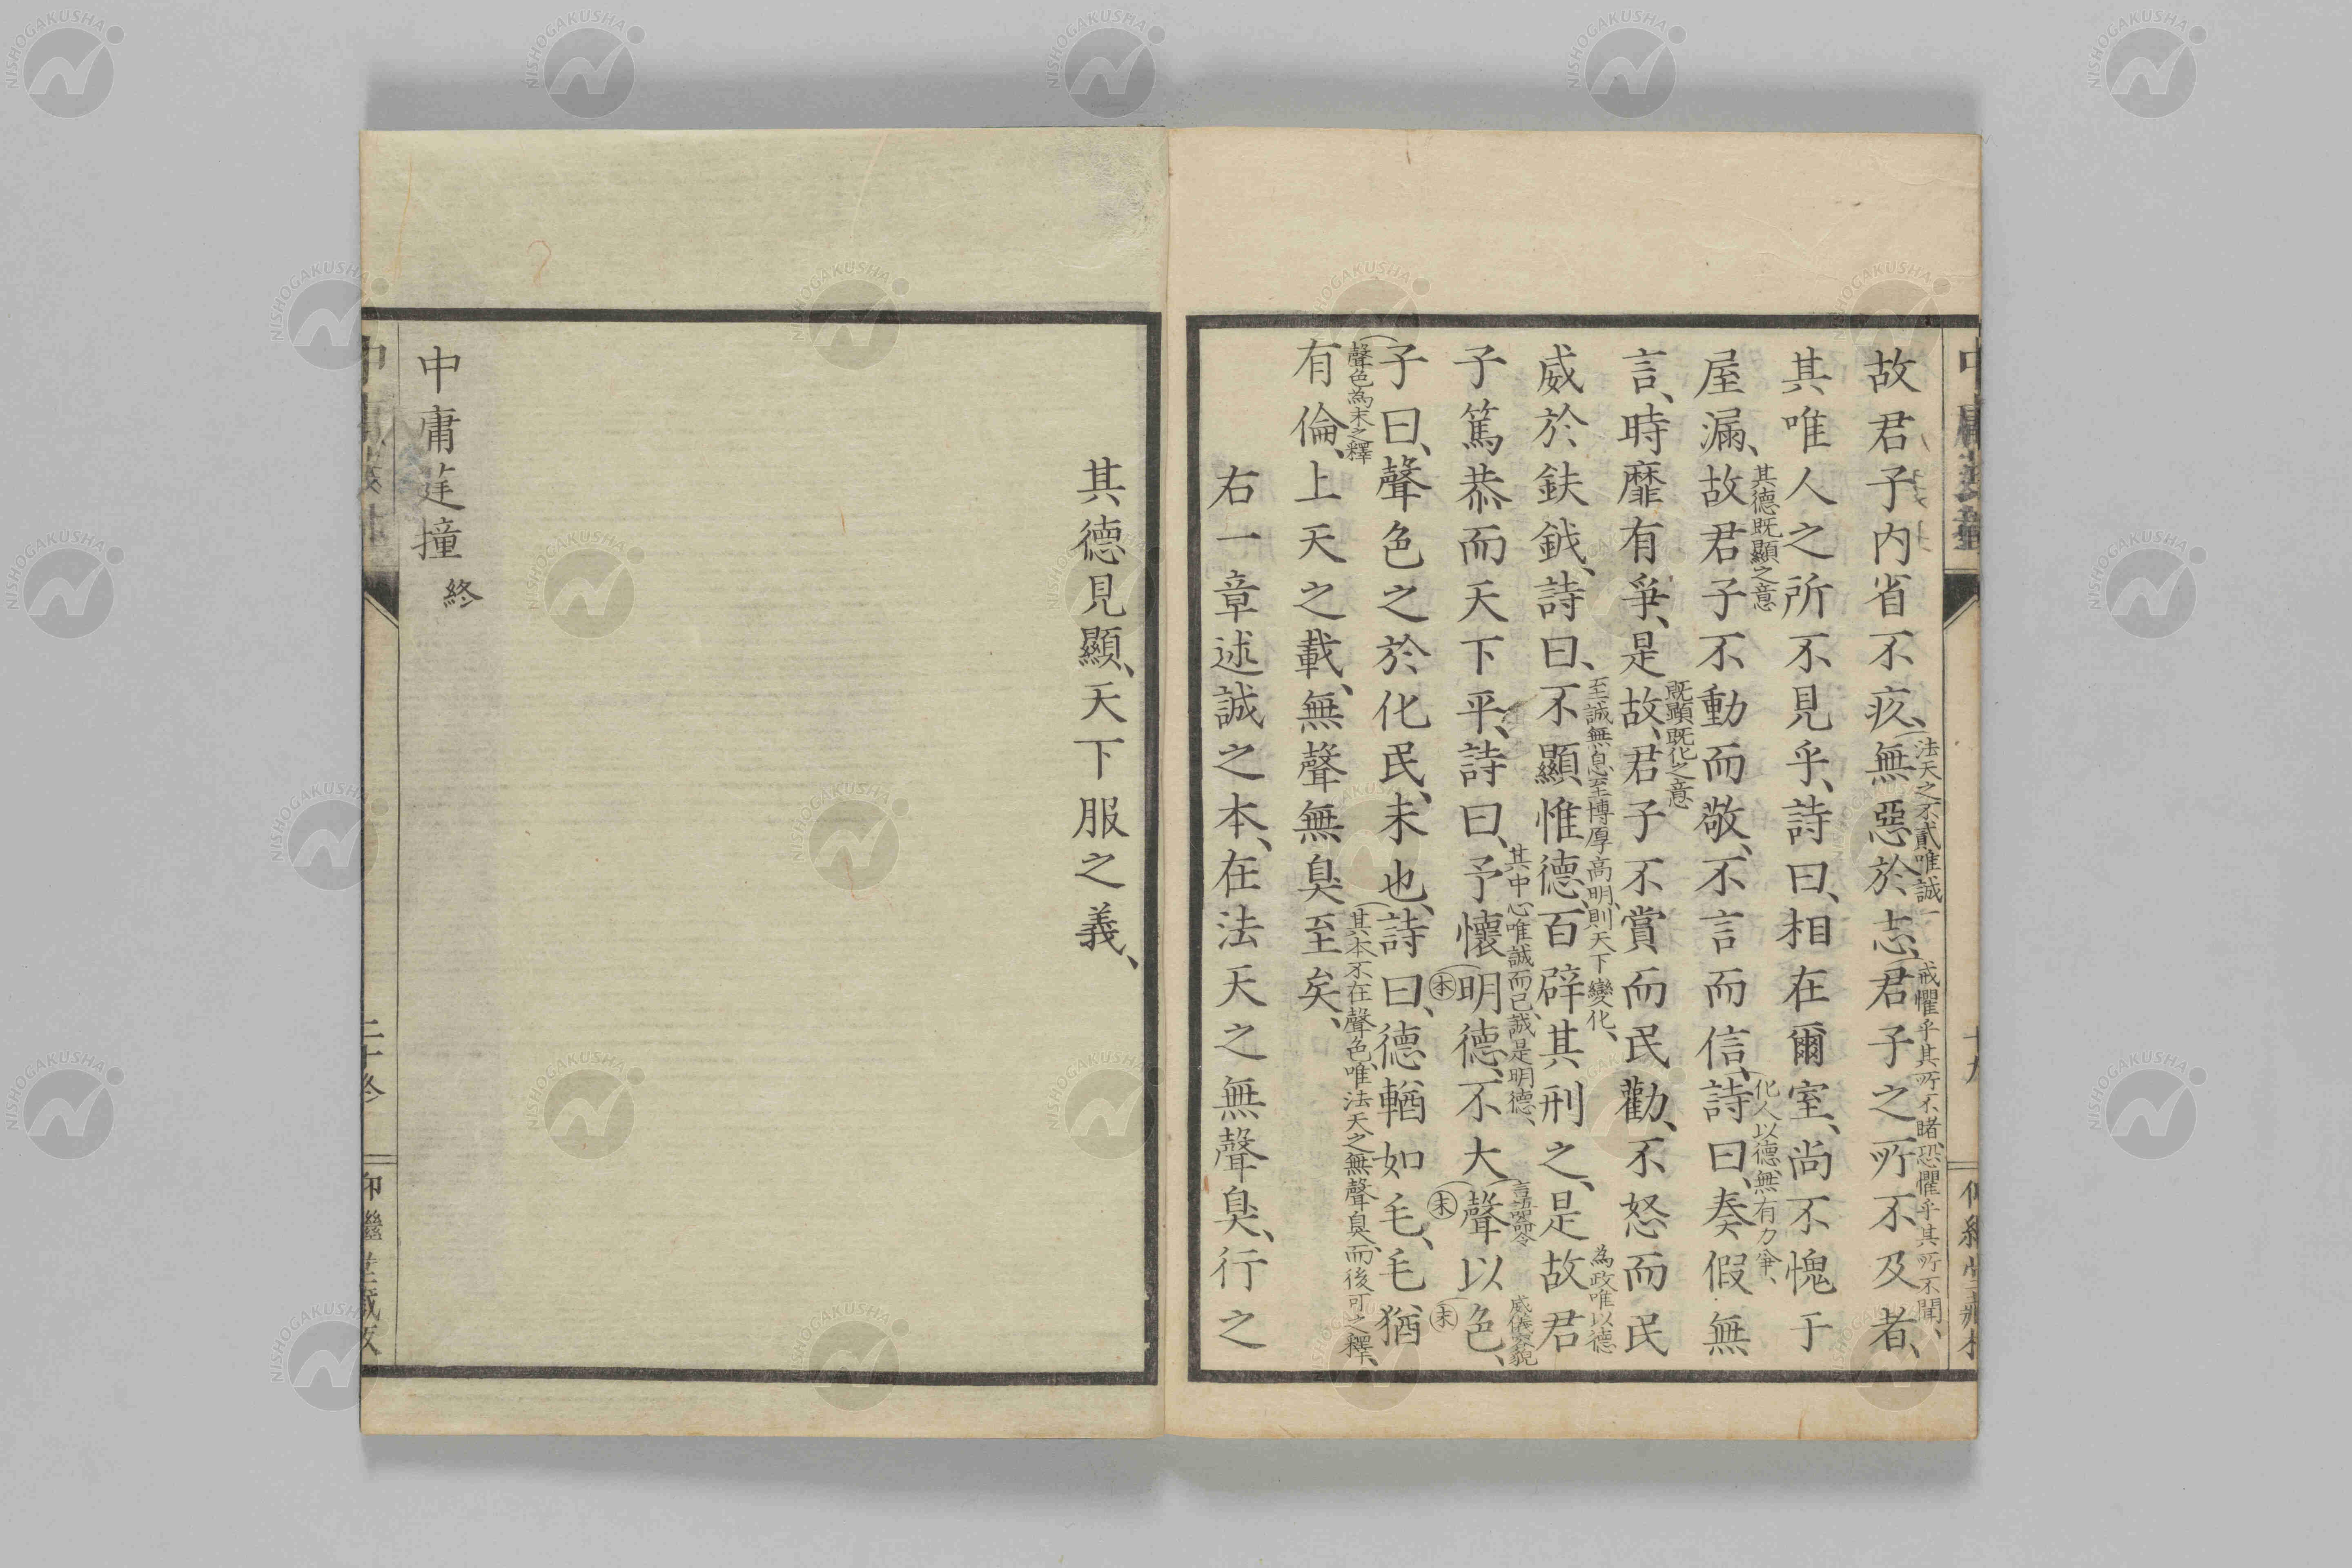 故君子内省不疚、無惡於志、君子之所不及者、
法天之不貳唯誠一
戒懼乎其所不睹、恐懼乎其所不聞、
其唯人之所不見乎、詩曰、相在爾室、尚不愧于
屋漏、故君子不動而敬、不言而信、詩曰、奏假無
其德既顯之意
化人以德、無有力爭、
言、時靡有爭、是故、君子不賞而民勸、不怒而民
既顯既化之意
威於鈇鉞、詩曰、不顯惟德、百辟其刑之、是故君
至誠無息至博厚高明、則天下變化、
為政唯以德
子篤恭而天下平、詩曰、予懷明德、不大聲以色、
其中心唯誠而已、誠是明德、
言語號令
威儀容貌
子曰、聲色之於化民、末也、詩曰、德輶如毛、毛猶
本
末
末
有倫、上天之載、無聲無臭、至矣、
聲色為末之釋
其本不在聲色、唯法天之無聲臭、而後可之釋、
右一章述誠之本、在法天之無聲臭、行之
其德見顯、天下服之義、
中庸莛撞 終
NISHOGAKUSHA